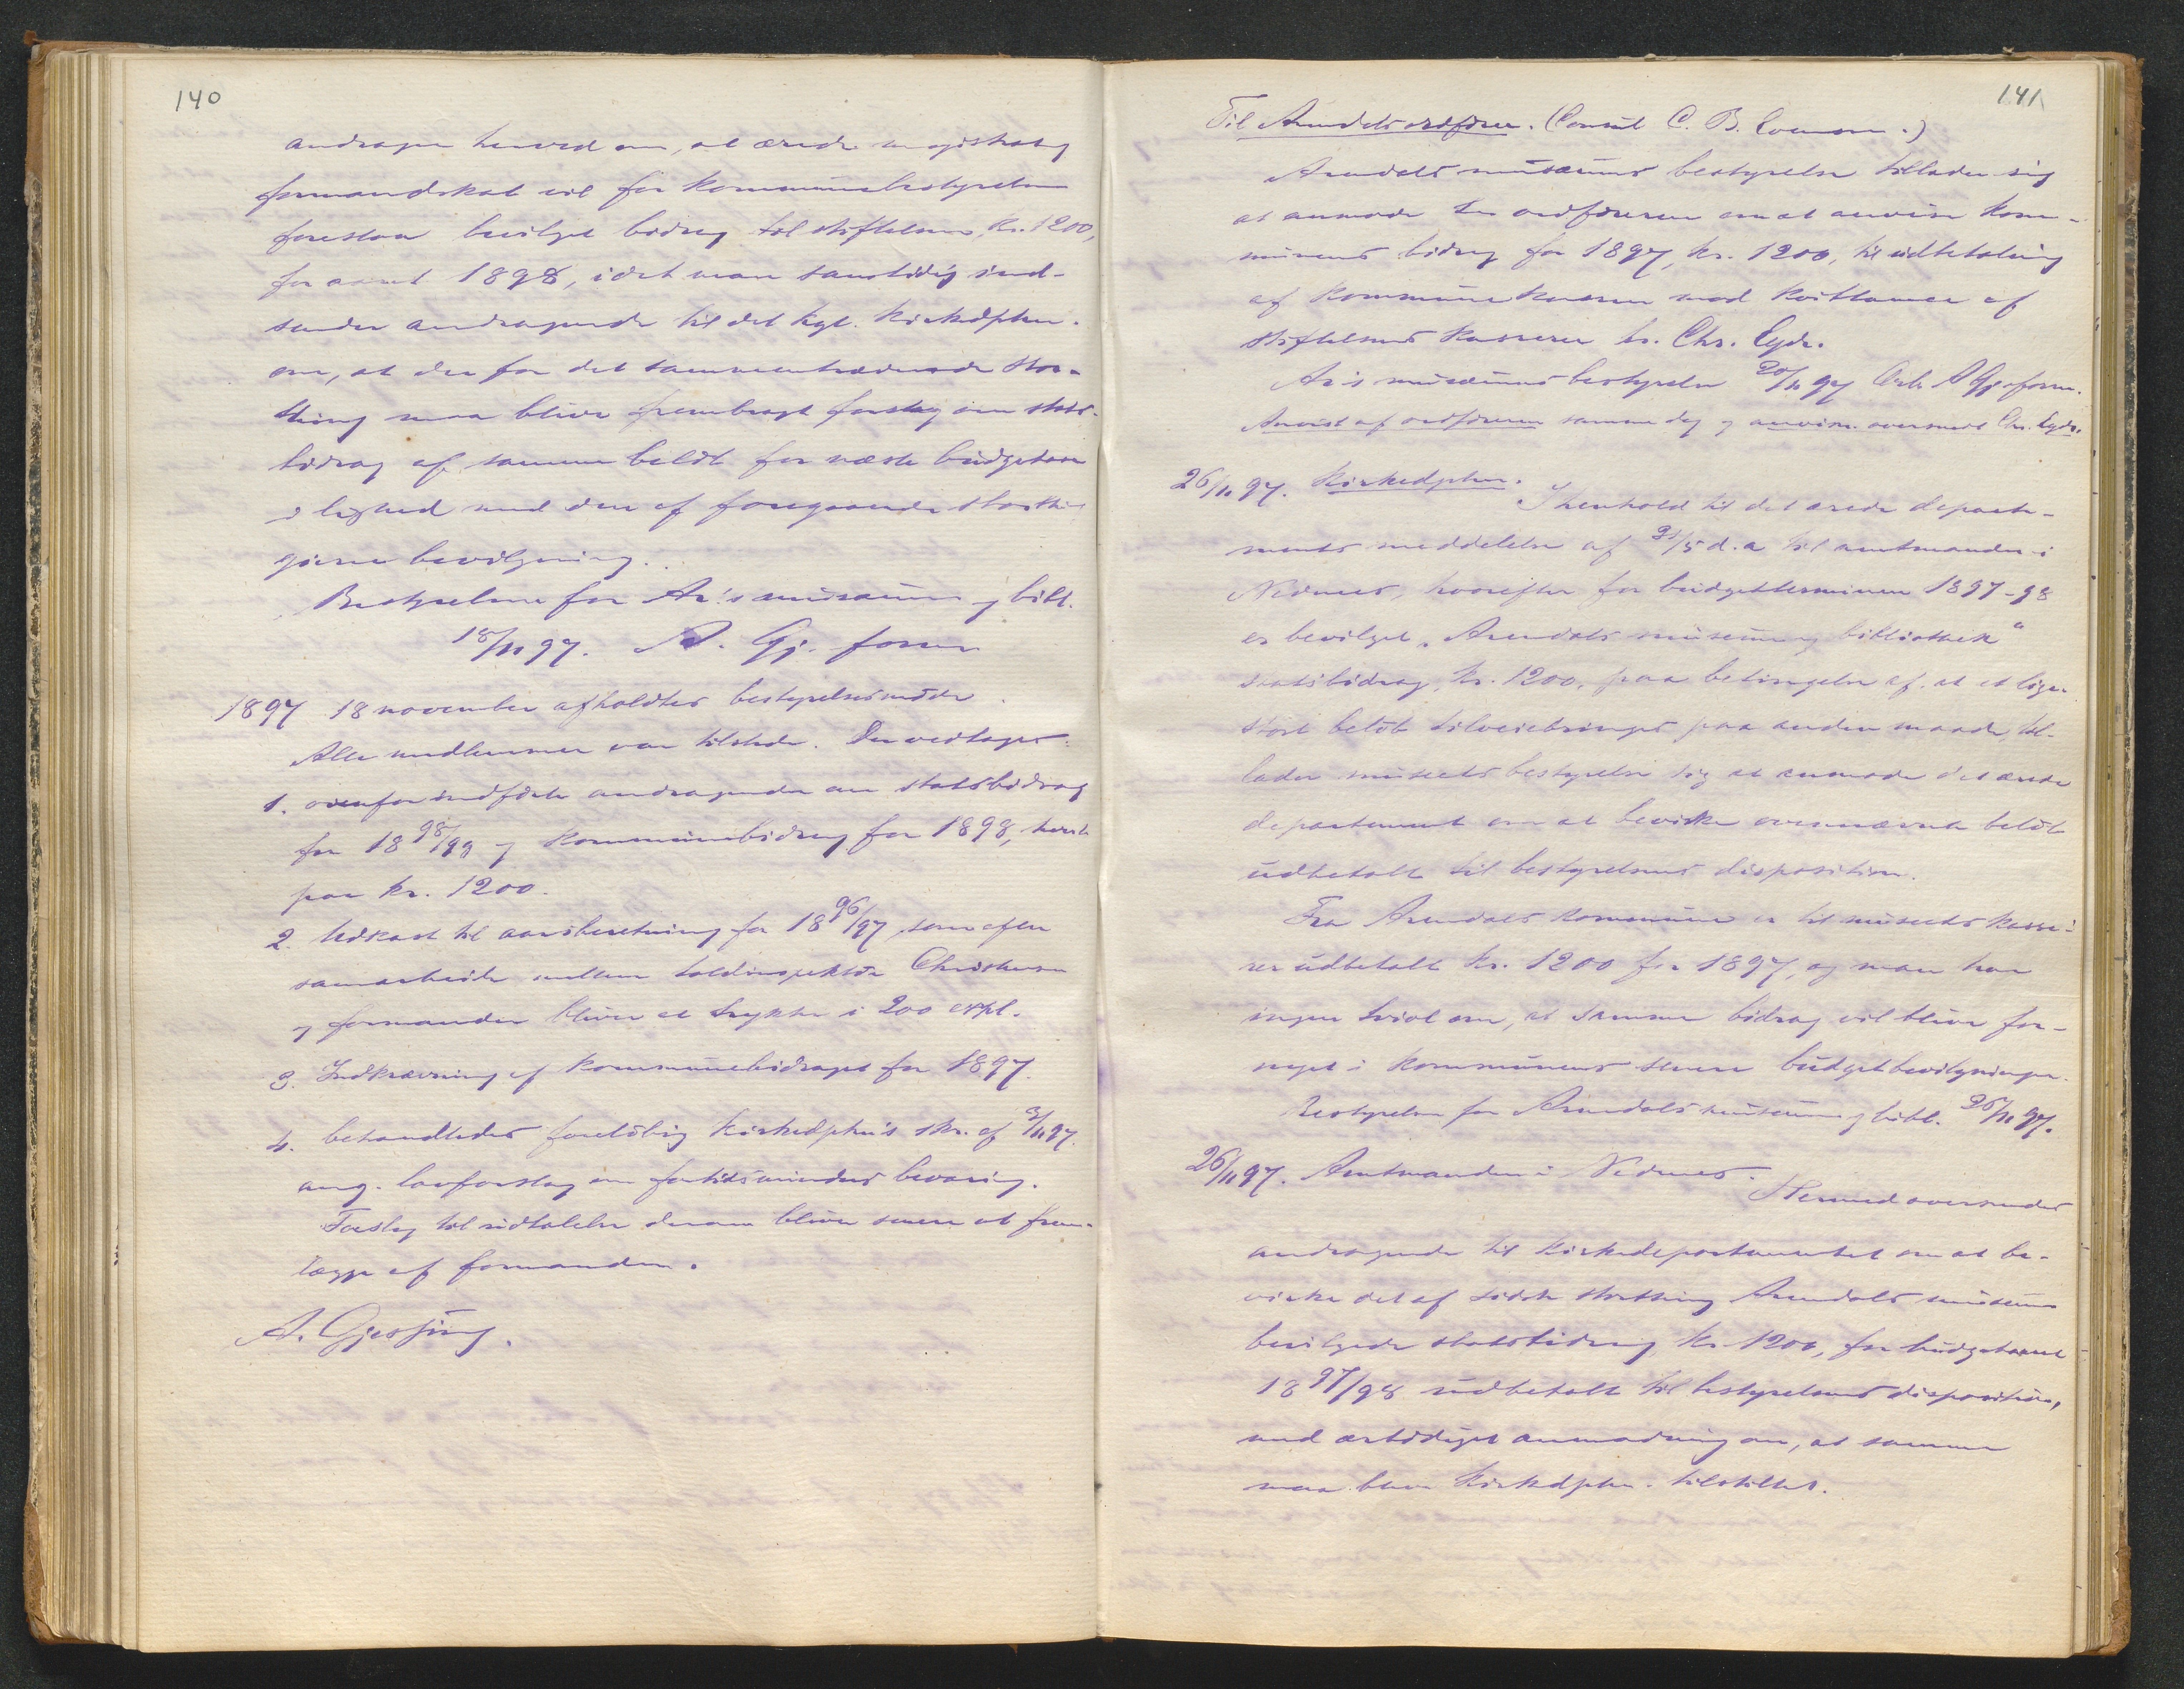 140
andrager herved om, at ærede magistrat og
formandskab vil for kommunebestyrelsen
foreslaa bevilget bidrag til stiftelsen, kr. 1200,
for aaret 1898, idet man samtidig ind-
sender andragende til det kgl. kirkedpten.
om, at der for det sammentrædende stor-
thing maa blive frembragt forslag om stats-
bidrag af samme beløb for næste budgetaar
i lighed med den af foregaaende storthing
givne bevilgning.
Bestyrelsen for Ar.'s museum og bibl.
18/11 97. A. Gj. form
1897 18 november afholdtes bestyrelsesmøde.
Alle medlemmer var tilstede. Der vedtoges:
1. ovenfor indførte andragender om statsbidrag
for 18 98/99 og kommunebidrag for 1898, hvert
paa kr. 1200.
2. Udkast til aarsberetning for 18 96/97, som efter
samarbeide mellem toldinspektør Christensen
og formanden bliver at trykke i 200 expl.
3. Indkrævning af kommunebidraget for 1897.
4. behandledes foreløbig kirkedpten's skr. af 3/11 97.
ang. lovforslag om fortidsminders bevaring.
Forslag til udtalelse derom bliver senere at frem-
lægge af formanden.
A. Gjessing.
141
Til Arendals ordfører. (Consul C. B. Evensen.)
Arendals museums bestyrelse tillader sig
at anmode hr. ordføreren om at anvise kom-
munens bidrag for 1897, kr. 1200, til udbetaling
af kommunekassen mod kvittance af
stiftelsens kasserer hr. Chr. Eyde.
Ar's museums bestyrelse 20/11 97 A Gj. form.
Anvist af ordføreren samme dag og anvisn. oversendt Chr. Eyde.
26/11 97. Kirkedpten.
I henhold til det ærede departe-
ments meddelelse af 31/5 d.a. til amtmanden i
Nedenes, hvorefter for budgetterminen 1897-98
er bevilget "Arendals museum og bibliothek"
statsbidrag, kr. 1200, paa betingelse af, at et lige-
stort beløb tilveiebringes paa anden maade, til-
lader museets bestyrelse sig at anmode det ærede
departement om at bevirke ovennævnte beløb
udbetalt til bestyrelsens disposition.
Fra Arendals kommune er til museets kasse-
rer udbetalt kr. 1200 for 1897, og man har
ingen tvivl om, at samme bidrag vil blive for-
nyet i kommunens senere budgetbevilgninger.
Bestyrelsen for Arendals museum og bibl. 26/11 97.
26/11 97. Amtmanden i Nedenes.
Hermed oversendes
andragende til kirkedepartementet om at be-
virke det af sidste storthing Arendals museum
bevilgede statsbidrag, kr. 1200, for budgetaaret
18 97/98 udbetalt til bestyrelsens disposition,
med ærbødigst anmodning om, at samme
maa blive kirkedpten. tilstillet.